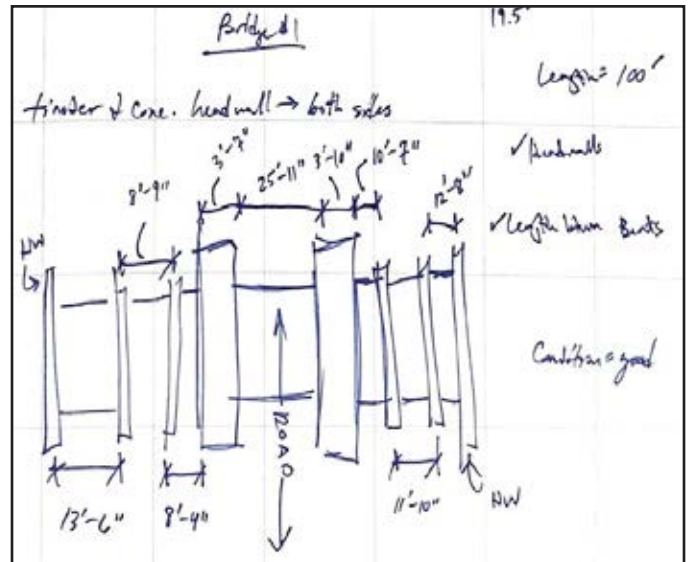 Bridge #1
19.5'
Length = 100'
timber & conc. headwall → both sides
✓ Headwalls
✓ Length btwn Bents
Condition = good
3'-3"
25'-11"
3'-10"
10'-7"
8'-9"
12'-8"
HW
ROAD
13'-6"
8'-4"
11'-10"
HW